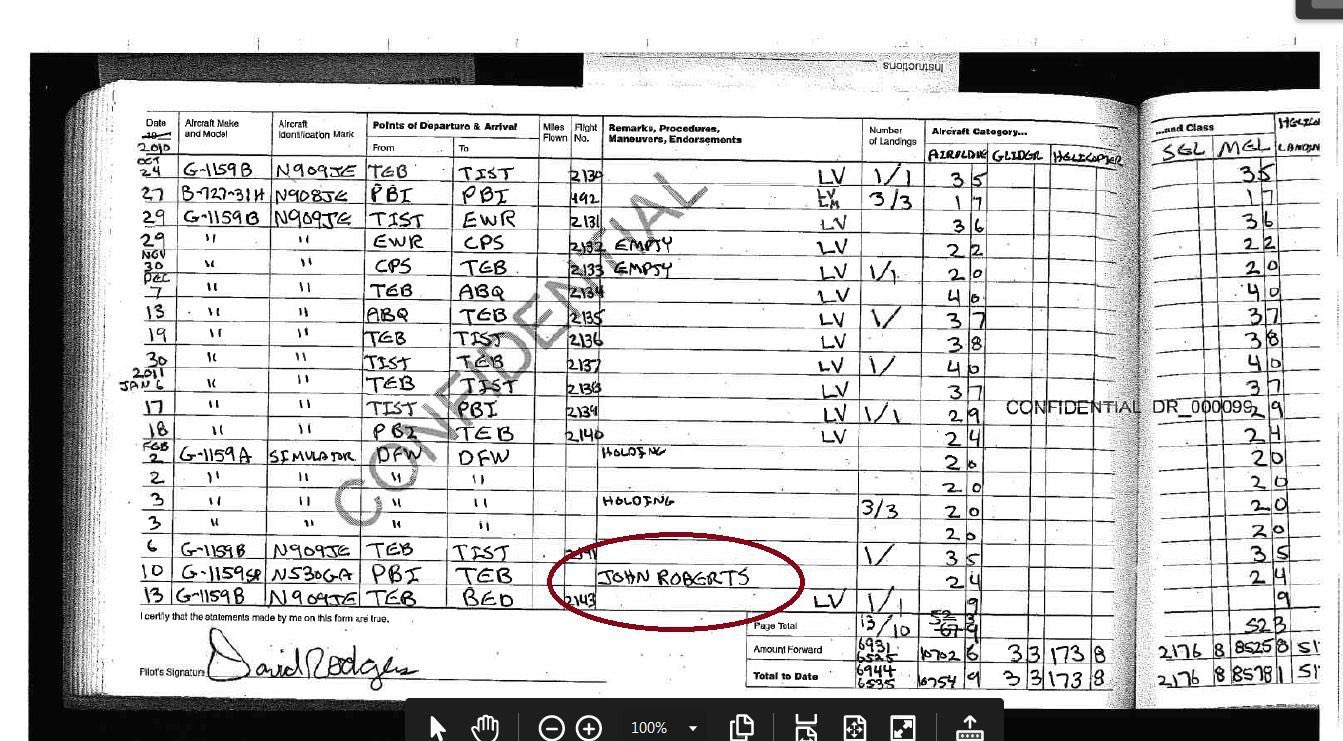 Instructions
Date 19 2010 Aircraft Make and Model Aircraft Identification Mark Points of Departure & Arrival From To Miles Flown Flight No. Remarks, Procedures, Maneuvers, Endorsements Number of Landings Aircraft Category... AIRPLANE GLIDER HELICOPTER ...and Class SEL MEL
OCT 24 G-1159B N909JE TEB TIST 2130 LV 1/1 3 5 3 5
27 B-727-31H N908JE PBI PBI 492 LV LM 3/3 1 7 1 7
29 G-1159B N909JE TIST EWR 2131 LV 3 6 3 6
29 " " EWR CPS 2132 EMPTY LV 2 2 2 2
NOV 30 " " CPS TEB 2133 EMPTY LV 1/1 2 0 2 0
DEC 7 " " TEB ABQ 2134 LV 4 0 4 0
13 " " ABQ TEB 2135 LV 1/ 3 7 3 7
19 " " TEB TIST 2136 LV 3 8 3 8
30 " " TIST TEB 2137 LV 1/ 4 0 4 0
2011 JAN 6 " " TEB TIST 2138 LV 3 7 3 7
17 " " TIST PBI 2139 LV 1/1 2 9 CONFIDENTIAL DR_000099 2 9
18 " " PBI TEB 2140 LV 2 4 2 4
FEB 2 G-1159A SIMULATOR DFW DFW HOLDING 2 0 2 0
2 " " " " 2 0 2 0
3 " " " " HOLDING 3/3 2 0 2 0
3 " " " " 2 0 2 0
6 G-1159B N909JE TEB TIST 1/ 3 5 3 5
10 G-1159SP N530GA PBI TEB JOHN ROBERTS 2 4 2 4
13 G-1159B N909JE TEB BED 2143 LV 1/1 9 9
I certify that the statements made by me on this form are true.
Page Total 13/10 52 3 52 3
Amount Forward 6931 6525 10702 6 3 3 173 8 2176 8 8525 8
Total to Date 6944 6535 10754 9 3 3 173 8 2176 8 8578 1
Pilot's Signature David Rodgers
CONFIDENTIAL
100%